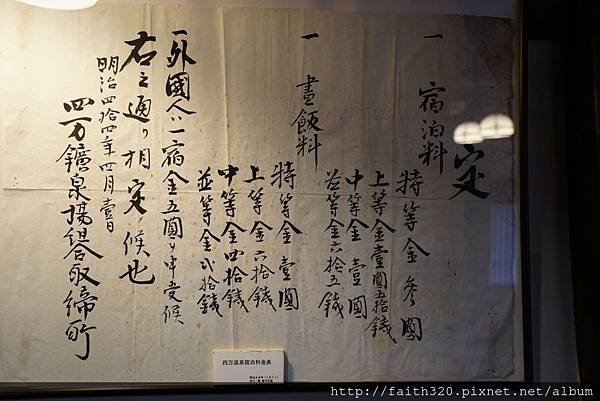 定
一 宿泊料
特等金參圓
上等金壹圓五拾錢
中等金壹圓
並等金六拾五錢
一 晝飯料
特等金壹圓
上等金六拾錢
中等金四拾錢
並等金弐拾錢
一外國人ハ一宿金五圓ヲ申受候
右之通リ相定候也
明治四拾四年四月壹日
四万鑛泉場組合取締所
四万温泉宿泊料金表
http://faith320.pixnet.net/album